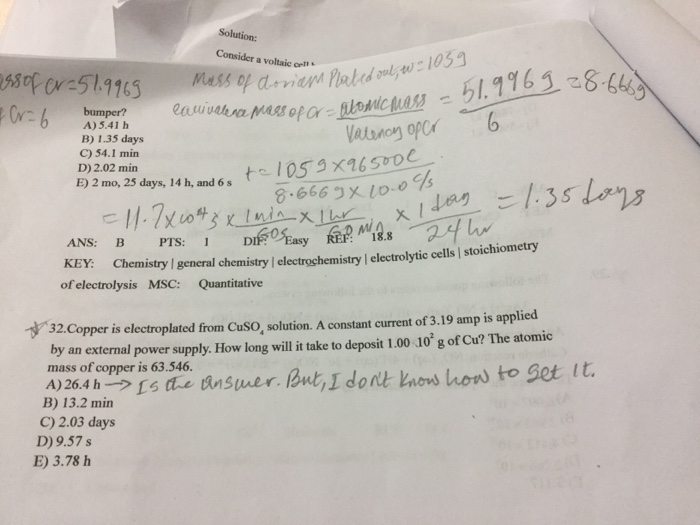 Solution:
Consider a voltaic cell
ss of cr = 51.9969
Mass of Plated out, w = 105g
Cr = 6
bumper?
equivalence Mass of Cr = atomic Mass / Valency of Cr = 51.996g / 6 = 8.666g
A) 5.41 h
B) 1.35 days
C) 54.1 min
D) 2.02 min
E) 2 mo, 25 days, 14 h, and 6 s
t = 105g × 96500C / 8.666g × 10.0 C/s
= 11.7 × 10^4 s × 1 min / 60s × 1 hr / 60 min × 1 day / 24 hr = 1.35 days
ANS: B PTS: 1 DIF: Easy REF: 18.8
KEY: Chemistry | general chemistry | electrochemistry | electrolytic cells | stoichiometry
of electrolysis MSC: Quantitative
32.Copper is electroplated from CuSO4 solution. A constant current of 3.19 amp is applied
by an external power supply. How long will it take to deposit 1.00 10² g of Cu? The atomic
mass of copper is 63.546.
A) 26.4 h → Is the answer. But, I don't know how to get it.
B) 13.2 min
C) 2.03 days
D) 9.57 s
E) 3.78 h